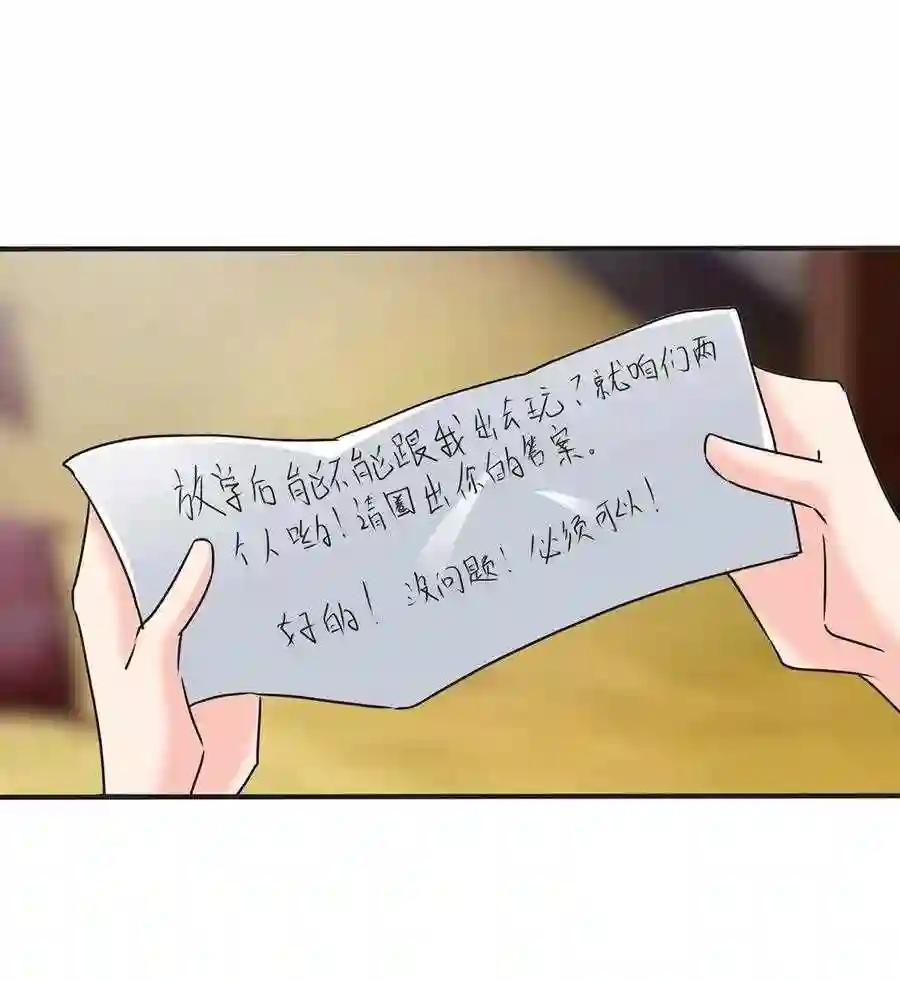 放学后能不能跟我出去玩？就咱们两
个人哟！请圈出你的答案。
好的！没问题！必须可以！